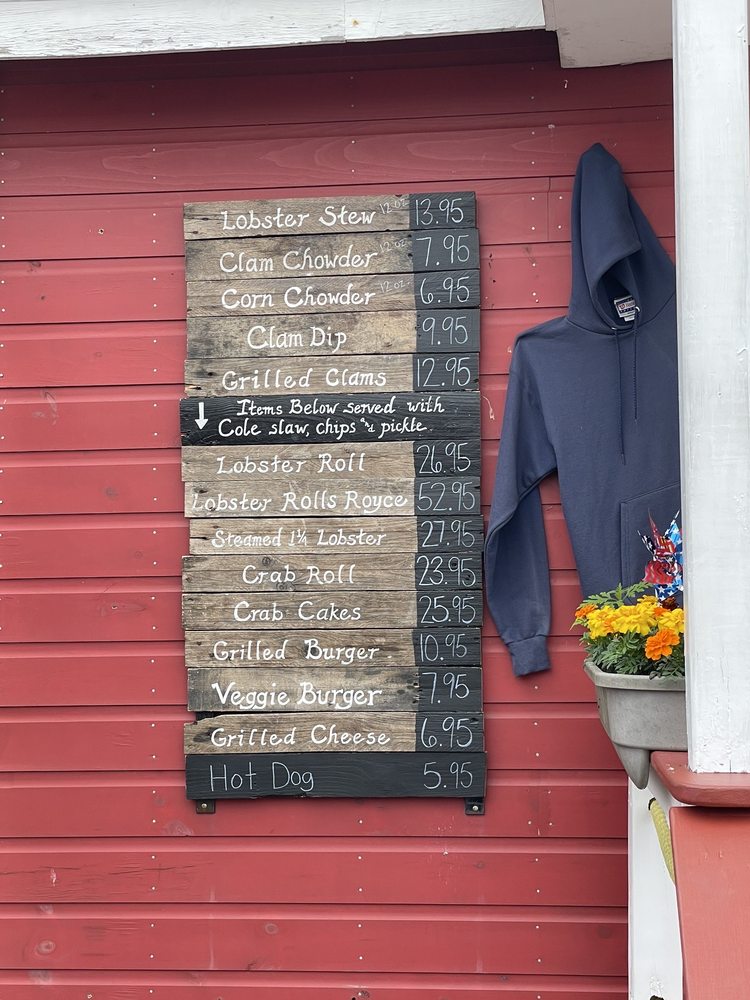 Lobster Stew 12 oz. 13.95
Clam Chowder 12 oz. 7.95
Corn Chowder 12 oz. 6.95
Clam Dip 9.95
Grilled Clams 12.95
↓ Items Below served with
Cole slaw, chips and pickle.
Lobster Roll 26.95
Lobster Rolls Royce 52.95
Steamed 1¼ Lobster 27.95
Crab Roll 23.95
Crab Cakes 25.95
Grilled Burger 10.95
Veggie Burger 7.95
Grilled Cheese 6.95
Hot Dog 5.95